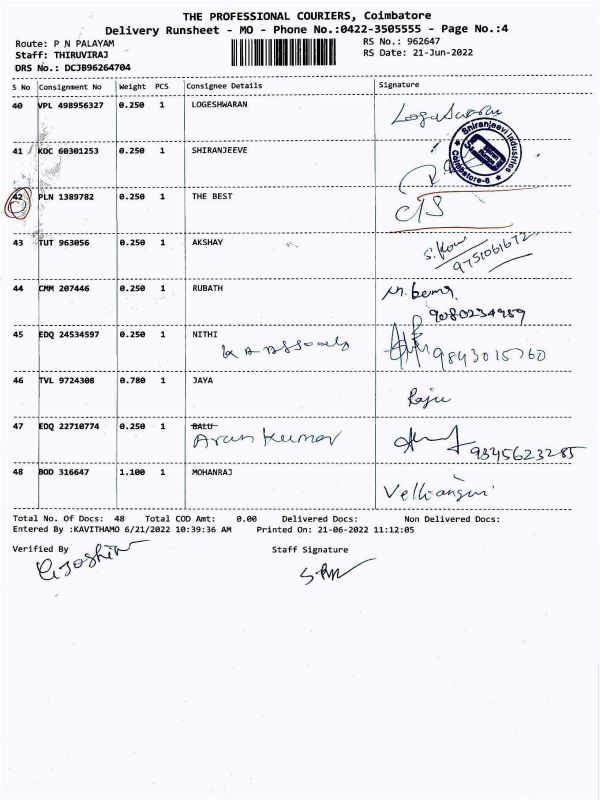 THE PROFESSIONAL COURIERS, Coimbatore
Delivery Runsheet - MO - Phone No.:0422-3505555 - Page No.:4
Route: P N PALAYAM
RS No.: 962647
Staff: THIRUVIRAJ
RS Date: 21-Jun-2022
DRS No.: DCJB96264704
S No Consignment No Weight PCS Consignee Details Signature
40 VPL 498956327 0.250 1 LOGESHWARAN
Shiranjeevi Industries
Coimbatore-6
41 KOC 60301253 0.250 1 SHIRANJEEVE
42 PLN 1389782 0.250 1 THE BEST
43 TUT 963056 0.250 1 AKSHAY
9751061672
44 CMM 207446 0.250 1 RUBATH
9080234989
45 EDQ 24534597 0.250 1 NITHI
9843015760
46 TVL 9724308 0.780 1 JAYA
Raju
47 EDQ 22710774 0.250 1 BALU
Arun Kumar 9345623285
48 BOD 316647 1.100 1 MOHANRAJ
Velliangiri
Total No. Of Docs: 48 Total COD Amt: 0.00 Delivered Docs: Non Delivered Docs:
Entered By :KAVITHAMO 6/21/2022 10:39:36 AM Printed On: 21-06-2022 11:12:05
Verified By Staff Signature